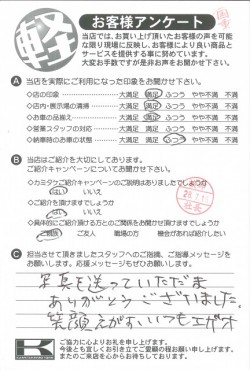 軽
お客様アンケート
当店では、お買い上げ頂いたお客様の声を可能
な限り現場に反映し、お客様により良い商品と
サービスを提供する事に努めています。
大変お手数ですが是非お声をお聞かせ下さい。
A 当店を実際にご利用になった印象をお聞かせ下さい。
◇店の印象 大満足 満足 ふつう やや不満 不満
◇店内・展示場の清掃 大満足 満足 ふつう やや不満 不満
◇お車の品揃え 大満足 満足 ふつう やや不満 不満
◇営業スタッフの対応 大満足 満足 ふつう やや不満 不満
◇納車時のお車の状態 大満足 満足 ふつう やや不満 不満
B 当店はご紹介を大切にしております。
ご紹介キャンペーンについてお聞かせ下さい。
◇カミタケご紹介キャンペーンのご説明はありましたでしょうか
はい いいえ
◇ご紹介を頂けますでしょうか
はい いいえ
◇具体的にご紹介頂ける方とのご関係をお聞かせ頂けますでしょうか
ご親族 ご友人 職場の方 機会があれば紹介したい
C 担当させて頂きましたスタッフへのご指摘、ご指導メッセージを
お願いします。応援メッセージもぜひお願いします。
写真を送っていただだま
ありがとうございました。
笑顔えがお、いつもエガオ
K
ご協力に心よりお礼を申し上げます。
今後とも宜しくお引き立てご愛顧の程お願い申し上げます。
またのご来店を心からお待ちしております。